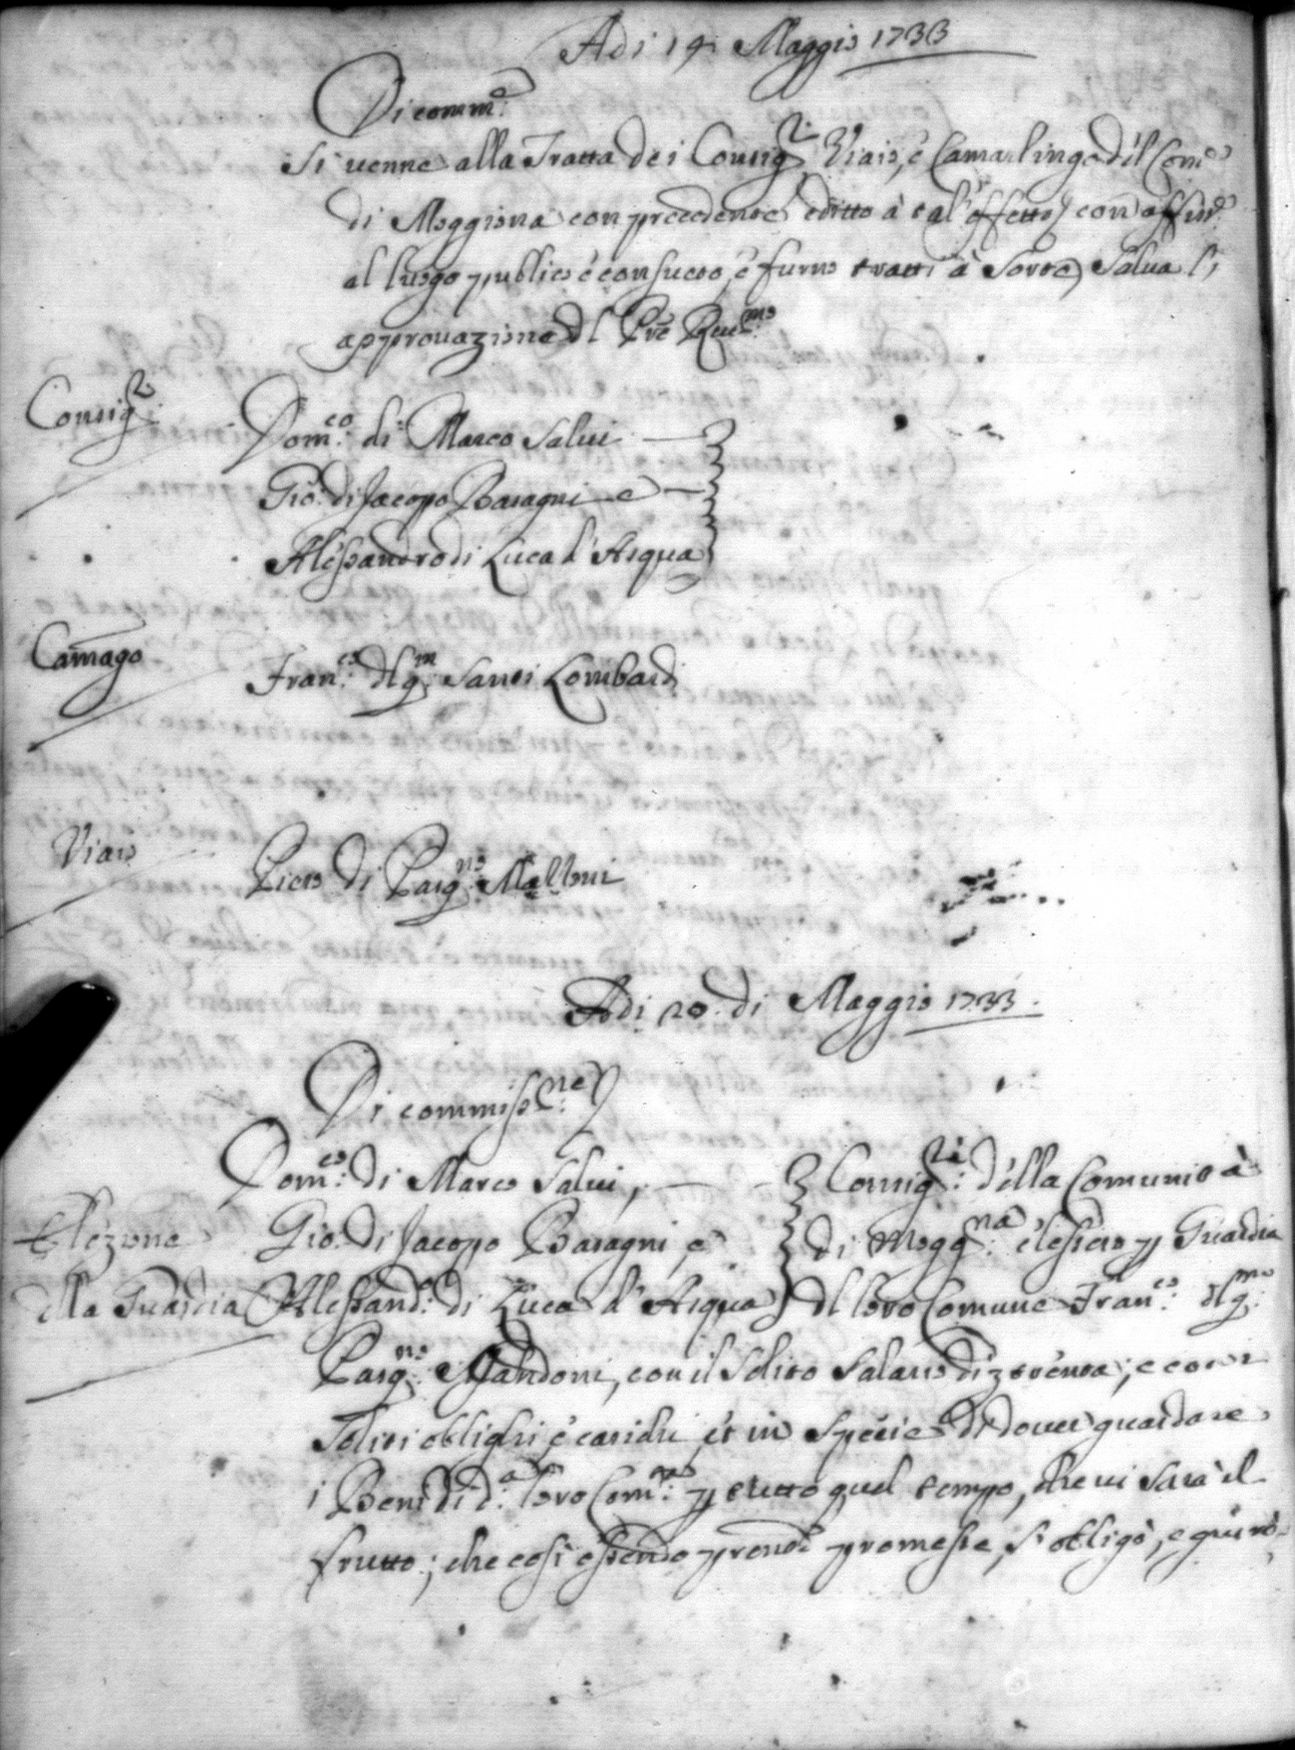 Adi 14 Maggio 1733
Di comm.e
Si uenne alla Tratta de i Consig.ri Viaio, e Camarlingo del Com.e
di Moggiona con precedente editto à tal' effetto, con
al luogo publico è consueto, è furno tratti à Sorte, Salua l'
approuazione dl Pre Reu.mo
Consig.ri
Dom.co di Marco Salui
Gio: di Jacopo Baragni e
Alessandro di Luca d'Acqua
Camago
Fran.co dl q.m Santi Lombardi
Viaio
Piero di Pasq.no Malloni
Adi 20. di Maggio 1733.
Di commiss.ne
Dom.co di Marco Salui, Consig.ri della Comunità
Elezione Gio: di Jacopo Baragni, e di Mogg.na elessero p Guardia
della Guardia Alessand.o di Luca d'Acqua dl loro Comune Fran.co dl q.m
Pasq.no Mandoni, con il Solito Salario di trenta; e con i
Soliti oblighi, è carichi, et in Specie di douer guardare
i Beni di d.a loro Com.tà p tutto quel tempo, che ui Sarà il
frutto; che così essendo promesse, si obligò, e giurò